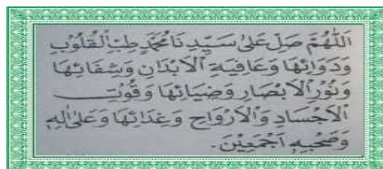 اَللّٰهُمَّ صَلِّ عَلٰى سَيِّدِنَا مُحَمَّدٍ طِبِّ الْقُلُوْبِ
وَدَوَائِهَا وَعَافِيَةِ الْاَبْدَانِ وَشِفَائِهَا
وَنُوْرِ الْاَبْصَارِ وَضِيَائِهَا وَقُوْتِ
الْاَجْسَادِ وَالْاَرْوَاحِ وَغِذَائِهَا وَعَلٰى اٰلِهٖ
وَصَحْبِهٖ اَجْمَعِيْنَ۔